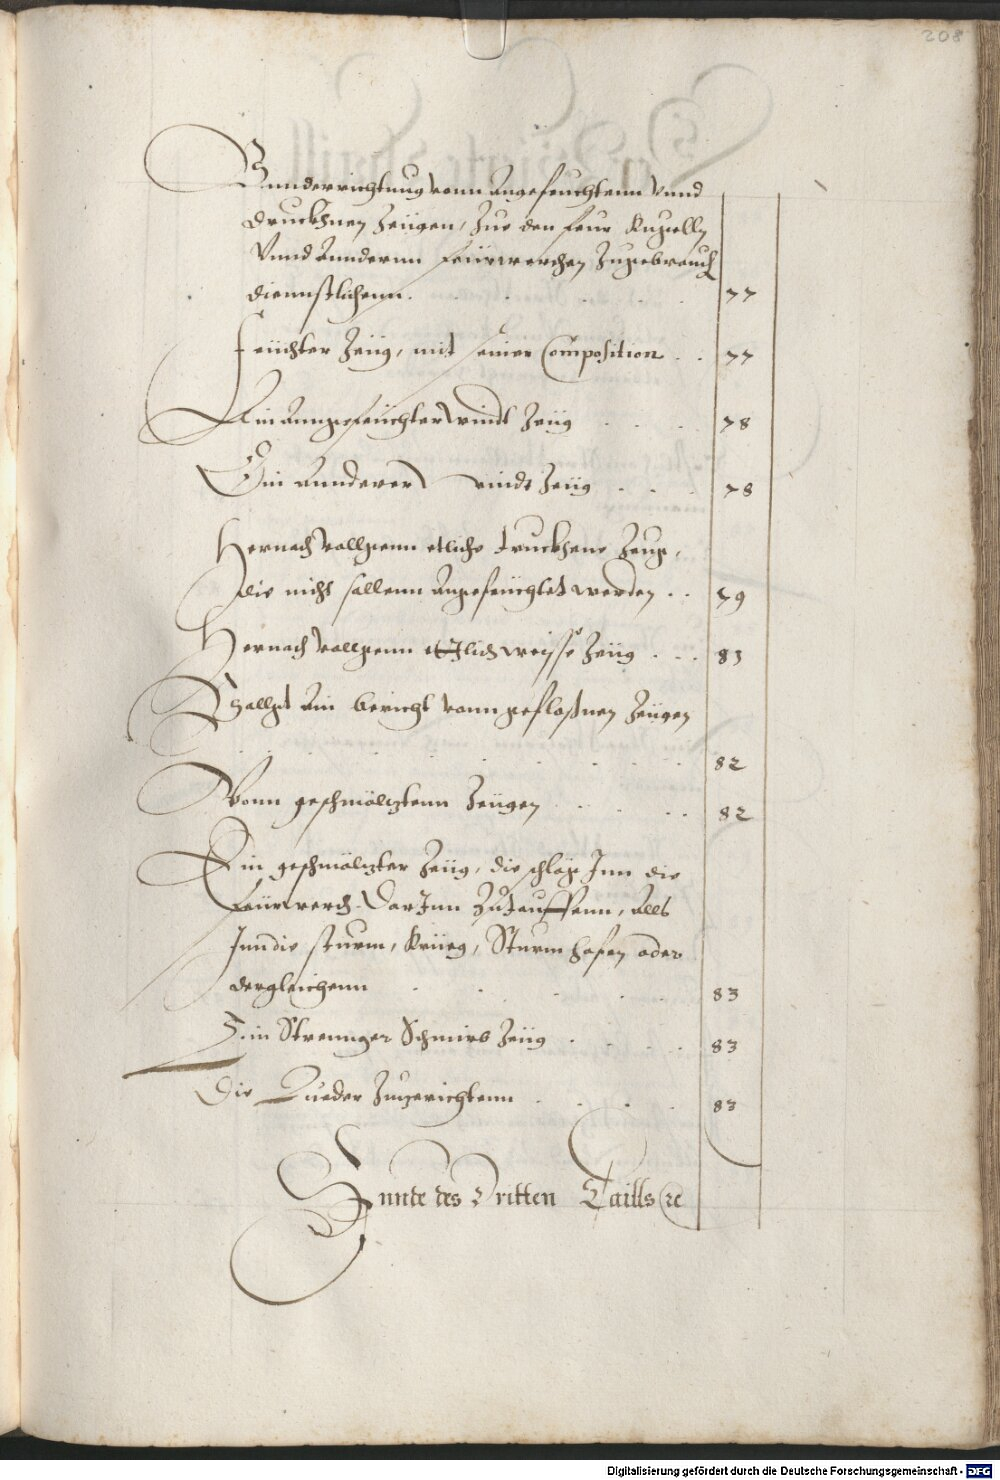 208
Vnnderrichtung vonn angefeuchtenn vnnd
druckhnen Zeügen, Zue den feur Kuglln
Vnnd Annderen feürwerchen Zugebrauch
diennstlichenn. 77
Feüchter Zeüg, mit seiner Composition 77
Ein anngefeüchter windt Zeüg 78
Ein annderer windt Zeüg 78
Hernach vollgenn etliche truckhene Zeug,
die nicht sollenn angefeüchtet werden 79
Hernach vollgenn etzlich weisse Zeüg 81
Vollgt ain bericht vonn geflossnen Zeügen
82
Vonn geschmöltztenn Zeügen 82
Ein geschmöltzter Zeüg, die schläg Inn die
Feürwerch DarInn Zu tauffenn, Alls
Inn die sturm, Krüeg, Sturm hafen oder
dergleichenn 83
Ein Strennger Schmirb Zeüg 83
Die Lueder Zuzerichtenn 83
Ennde des Dritten Taills etc
Digitalisierung gefördert durch die Deutsche Forschungsgemeinschaft - DFG